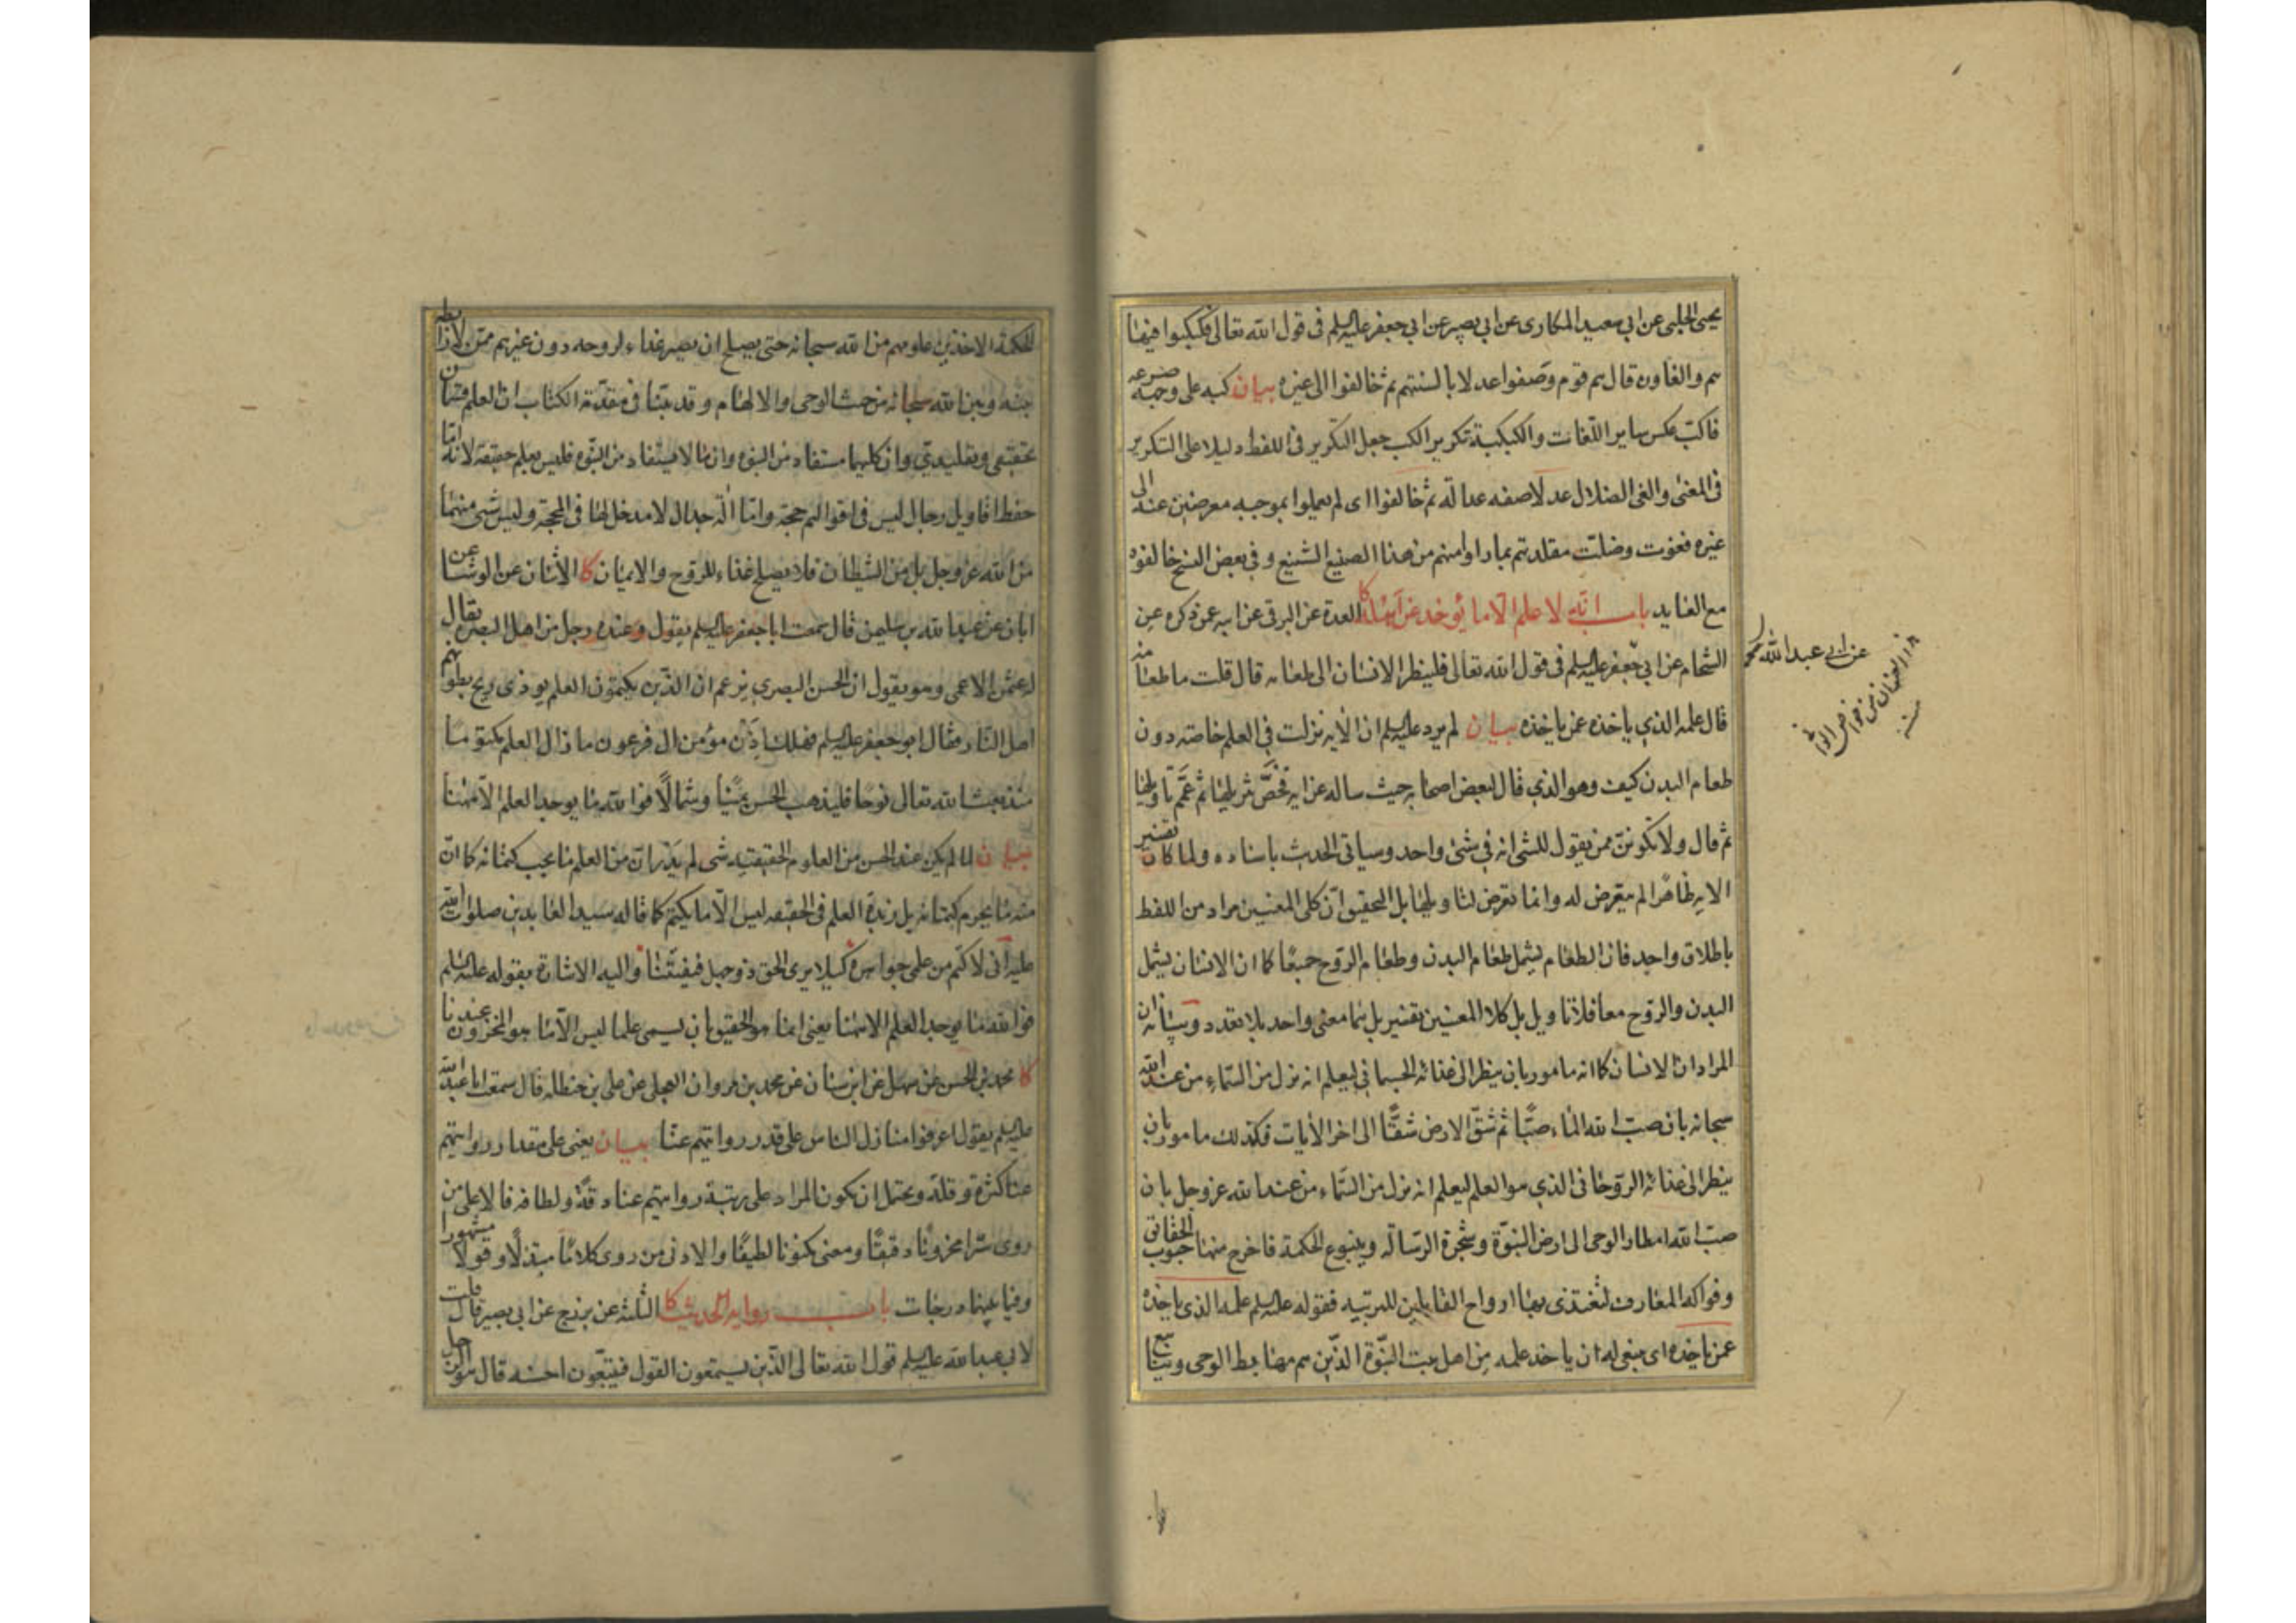 يحيى الحلبى عن ابى سعيد المكارى عن ابى بصير عن ابى جعفر عليه السلم فى قول الله تعالى فكبكبوا فيها
هم والغاون قال هم قوم وصفوا عدلا بالسنتهم ثم خالفوا الى غيره بيان كبه على وجهه صرعه
فاكب عكس ساير اللغات والكبكبة تكرير الكب جعل التكرير فى اللفظ دليلا على التكرير
فى المعنى والغى الضلال عدلا صفه عدالة ثم خالفوا اى لم يعملوا بموجبه معرضين عنه الى
غيره فغوت وضلت مقلدتهم بما راوا منهم من هذا الصنيع الشنيع وفى بعض النسخ خالفوه
مع العايد باب انه لا علم الا ما يوخذ عن اهله كا العدة عن البرقى عن ابيه عمن ذكره عن
الشحام عن ابى جعفر عليه السلم فى قول الله تعالى فلينظر الانسان الى طعامه قال قلت ما طعامه
قال علمه الذي ياخذه عمن ياخذه بيان لم يرد عليه السلم ان الايه نزلت فى العلم خاصة دون
طعام البدن كيف وهو الذي قال لبعض اصحابه حيث ساله عن ايه فخص تنزيلها ثم عمم تاويلها
ثم قال ولا تكونن ممن يقول للشى انه فى شئ واحد وسياتى الحديث باسناده ولما كان تفسير
الايه ظاهرا لم يتعرض له وانما تعرض لتاويلها بل التحقيق ان كلى المعنيين مراد من اللفظ
باطلاق واحد فان الطعام يشمل طعام البدن وطعام الروح جميعا كما ان الانسان يشمل
البدن والروح معا فلا تاويل بل كلا المعنيين تفسير بل هما معنى واحد بلا تعدد وبيانه ان
المراد ان الانسان كما انه مامور بان ينظر الى غذائه الجسمانى ليعلم انه نزل من السماء من عند الله
سبحانه بان صب الله الماء صبا ثم شق الارض شقا الى اخر الايات فكذلك مامور بان
ينظر الى غذائه الروحانى الذي هو العلم ليعلم انه نزل من السماء من عند الله عز وجل بان
صب الله امطار الوحى الى ارض النبوة وشجرة الرسالة وينبوع الحكمة فاخرج منها حبوب الحقائق
وفواكه المعارف لتغتذى بها ارواح القابلين للتربية فقوله عليه السلم علمه الذى ياخذه
عمن ياخذه اى ينبغى له ان ياخذ علمه من اهل بيت النبوة الذين هم مهابط الوحى وينابيع
عن ابى عبد الله
الحكمة الاخذين علومهم من الله سبحانه حتى يصلح ان يصير غذاء لروحه دون غيرهم ممن لا رابطة
بينه وبين الله سبحانه من حيث الوحى والالهام وقد بينا فى مقدمة الكتاب ان العلم قسمان
تحقيقى وتقليدي وان كليهما مستفاد من النبوه وان ما لا يستفاد من النبوه فليس بعلم حقيقة لانه اما
حفظ اقاويل رجال ليس فى اقوالهم حجة واما الة جدال لا مدخل لها فى المحجة وليس شى منهما
من الله عز وجل بل من الشيطان فلا يصلح غذاء للروح والايمان كا الاثنان عن الوشا عن
ابان عن عبد الله بن سليمن قال سمعت ابا جعفر عليه السلم يقول وعنده رجل من اهل البصره يقال
له عثمن الاعمى وهو يقول ان الحسن البصري يزعم ان الذين يكتمون العلم يوذى ريح بطونهم
اهل النار فقال ابو جعفر عليه السلم فهلك اذن مؤمن ال فرعون ما زال العلم مكتوما
منذ بعث الله تعالى نوحا فليذهب الحسن يمينا وشمالا فوالله ما يوجد العلم الا ههنا
بيان لما لم يكن عند الحسن من العلوم الحقيقيه شى لم يدر ان من العلم ما يجب كتمانه كما ان
منه ما يحرم كتمانه بل زبدة العلم فى الحقيقه ليس الا ما يكتم كما قاله سيد العابدين صلوات الله
عليه انى لاكتم من علمى جواهره كيلا يرى الحق ذو جهل فيفتتنا واليه الاشارة بقوله عليه السلم
فوالله ما يوجد العلم الا ههنا يعنى انما هو الحقيق بان يسمى علما ليس الا ما هو المخزون عندنا
كا محمد بن الحسن عن سهل عن ابن سنان عن محمد بن مروان العجلى عن على بن حنظله قال سمعت ابا عبد الله
عليه السلم يقول اعرفوا منازل الناس على قدر روايتهم عنا بيان يعنى على مقدار روايتهم
عنا كثرة وقلة ويحتمل ان يكون المراد على رتبة روايتهم عنا دقة ولطافه فالاعلى من
روى سرا مخزونا دقيقا ومعنى مكنونا لطيفا والادنى من روى كلاما مبتذلا وقولا مشهورا
وفيما بينهما درجات باب رواية الحديث كا الثلثة عن بزرج عن ابى بصير قال قلت
لابى عبد الله عليه السلم قول الله تعالى الذين يستمعون القول فيتبعون احسنه قال هو الرجل